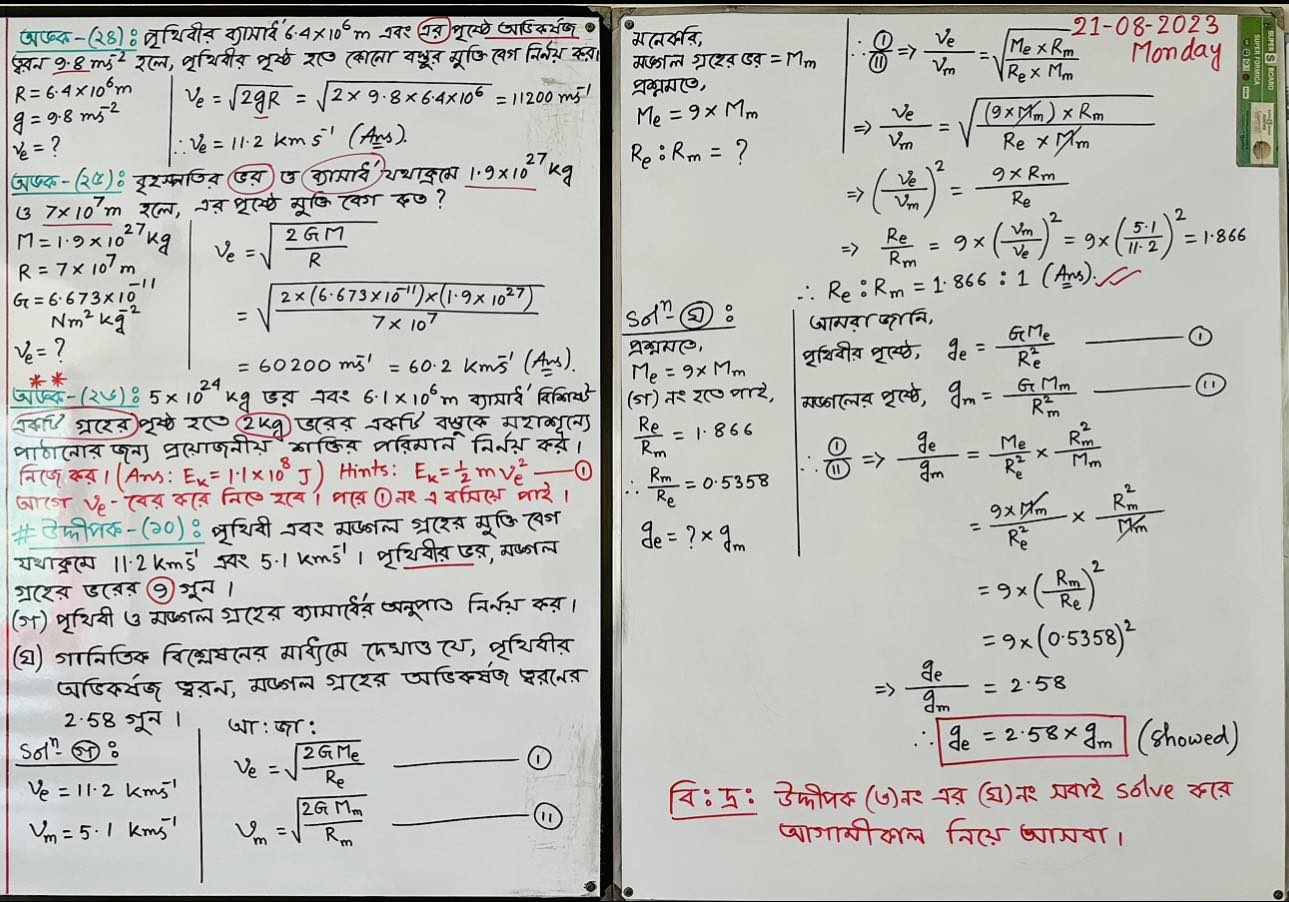 অংক-(২৪): পৃথিবীর ব্যাসার্ধ 6.4×10⁶ m এবং এর পৃষ্ঠে অভিকর্ষজ
ত্বরন 9.8 ms⁻² হলে, পৃথিবীর পৃষ্ঠ হতে কোনো বস্তুর মুক্তি বেগ নির্নয় কর।
R = 6.4×10⁶ m
g = 9.8 ms⁻²
vₑ = ?
vₑ = √(2gR) = √(2 × 9.8 × 6.4×10⁶) = 11200 ms⁻¹
∴ vₑ = 11.2 km s⁻¹ (Ans).
অংক-(২৫): বৃহস্পতির ভর ও ব্যাসার্ধ যথাক্রমে 1.9×10²⁷ kg
ও 7×10⁷ m হলে, এর পৃষ্ঠে মুক্তি বেগ কত?
M = 1.9×10²⁷ kg
R = 7×10⁷ m
G = 6.673×10⁻¹¹
Nm² kg⁻²
vₑ = ?
vₑ = √(2GM / R)
= √(2×(6.673×10⁻¹¹)×(1.9×10²⁷) / 7×10⁷)
= 60200 ms⁻¹ = 60.2 kms⁻¹ (Ans).
**
অংক-(২৬): 5×10²⁴ kg ভর এবং 6.1×10⁶ m ব্যাসার্ধ বিশিষ্ট
একটি গ্রহের পৃষ্ঠ হতে 2kg ভরের একটি বস্তুকে মহাশূন্যে
পাঠানোর জন্য প্রয়োজনীয় শক্তির পরিমান নির্নয় কর।
নিজে কর। (Ans: Eₖ = 1.1×10⁸ J) Hints: Eₖ = ½ m vₑ² —— ①
আগে vₑ - বের করে নিতে হবে। পরে ① নং এ বসিয়ে পাই।
# উদ্দীপক-(১০): পৃথিবী এবং মঙ্গল গ্রহের মুক্তি বেগ
যথাক্রমে 11.2 kms⁻¹ এবং 5.1 kms⁻¹। পৃথিবীর ভর, মঙ্গল
গ্রহের ভরের 9 গুন।
(গ) পৃথিবী ও মঙ্গল গ্রহের ব্যাসার্ধের অনুপাত নির্নয় কর।
(ঘ) গানিতিক বিশ্লেষনের মাধ্যমে দেখাও যে, পৃথিবীর
অভিকর্ষজ ত্বরন, মঙ্গল গ্রহের অভিকর্ষজ ত্বরনের
2.58 গুন।
Solⁿ- গ:
vₑ = 11.2 kms⁻¹
vₘ = 5.1 kms⁻¹
আ: জা:
vₑ = √(2GMₑ / Rₑ) —— ①
vₘ = √(2GMₘ / Rₘ) —— ⑪
21-08-2023
Monday
SUPER S BOARD
SUPER FORMICA
মনেকরি,
মঙ্গল গ্রহের ভর = Mₘ
প্রশ্নমতে,
Mₑ = 9 × Mₘ
Rₑ : Rₘ = ?
∴ ①/⑪ ⇒ vₑ/vₘ = √(Mₑ × Rₘ / Rₑ × Mₘ)
⇒ vₑ/vₘ = √((9×Mₘ) × Rₘ / Rₑ × Mₘ)
⇒ (vₑ/vₘ)² = 9 × Rₘ / Rₑ
⇒ Rₑ/Rₘ = 9 × (vₘ/vₑ)² = 9 × (5.1/11.2)² = 1.866
∴ Rₑ : Rₘ = 1.866 : 1 (Ans).
Solⁿ- ঘ:
প্রশ্নমতে,
Mₑ = 9 × Mₘ
(গ) নং হতে পাই,
Rₑ/Rₘ = 1.866
∴ Rₘ/Rₑ = 0.5358
gₑ = ? × gₘ
আমরা জানি,
পৃথিবীর পৃষ্ঠে, gₑ = GMₑ / Rₑ² —— ①
মঙ্গলের পৃষ্ঠে, gₘ = GMₘ / Rₘ² —— ⑪
∴ ①/⑪ ⇒ gₑ/gₘ = Mₑ/Rₑ² × Rₘ²/Mₘ
= 9×Mₘ/Rₑ² × Rₘ²/Mₘ
= 9 × (Rₘ/Rₑ)²
= 9 × (0.5358)²
⇒ gₑ/gₘ = 2.58
∴ gₑ = 2.58 × gₘ (Showed)
বি: দ্র: উদ্দীপক (৩)নং এর (ঘ)নং সবাই solve করে
আগামীকাল নিয়ে আসবা।